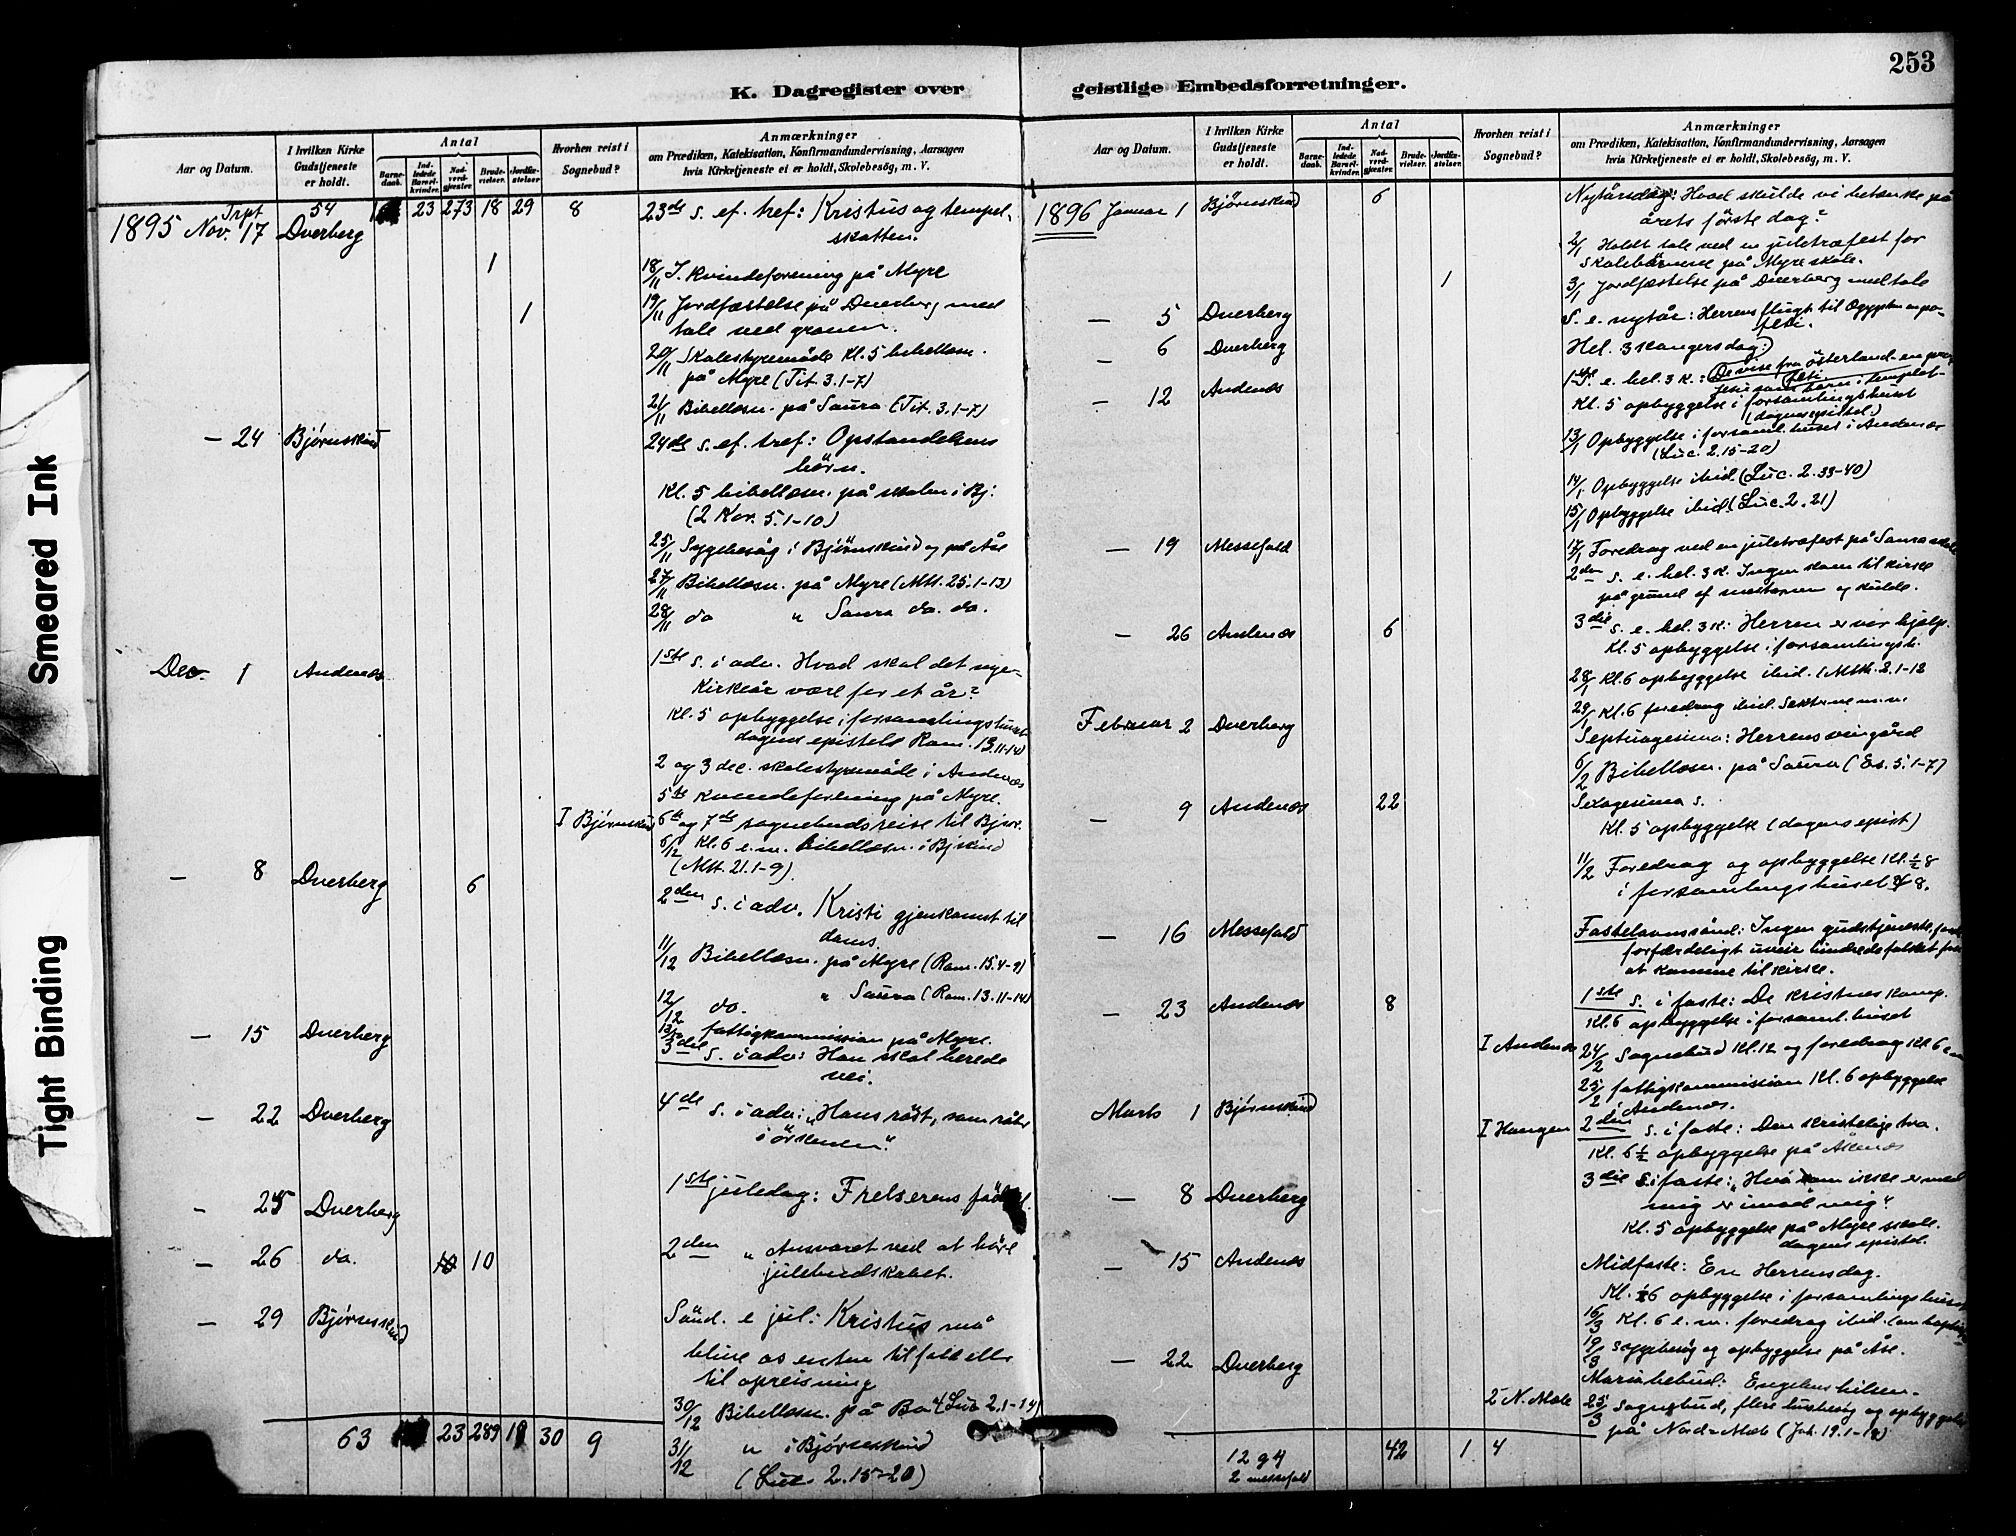 253
K. Dagregister over geistlige Embedsforretninger.
Smeared Ink
Tight Binding
Aar og Datum.
I hvilken Kirke Gudstjeneste er holdt.
Antal
Barne- daab.
Ind- ledede Barsel- kvinder.
Nad- verd- gjæster.
Brude- vielser.
Jordfæ- stelser.
Hvorhen reist i Sognebud?
Anmærkninger
om Prædiken, Katekisation, Konfirmandundervisning, Aarsagen
hvis Kirketjeneste ei er holdt, Skolebesøg, m. V.
Trpt 54 23 273 18 29 8
1895 Nov. 17 Dverberg 23de s. ef. tref: Kristus og tempel-
skatten.
1 18/11 I. Kvindeforening på Myre
1 19/11 Jordfæstelse på Dverberg med
tale ved graven.
20/11 Skolestyremöde Kl. 5 bibellæsn.
på Myre (Tit. 3.1-7)
21/11 Bibellæsn. på Saura (Tit. 3.1-7)
— 24 Bjørnskind 24de s. ef. tref: Opstandelsens
börn.
Kl. 5 bibellæsn. på skolen i Bj:
(2 Kor. 5.1-10)
25/11 Sygebesög i Björnskind og på Åse
27/11 Bibellæsn. på Myre (Mtt. 25.1-13)
28/11 do " Saura do. do.
Dec. 1 Andenæs 1ste s. i adv. Hvad skal det nye
Kirkeår være for et år?
Kl. 5 opbyggelse i forsamlingshuset
dagens epistel Rom. 13.11-14)
2 og 3 dec. skolestyremöde i Andenæs
5te Kvindeforening på Myre.
I Bjørnskind 6te og 7de sognebudsreise til Bjørn.
6/12 Kl. 6 e.m. bibellæsn. i Bjskind
(Mtt. 21.1-9)
— 8 Dverberg 6 2den s. i adv. Kristi gjenkomst til
doms.
11/12 Bibellæsn. på Myre (Rom. 15.4-9)
12/12 do. " Saura (Rom. 13.11-14)
13/12 fattigkommission på Myre.
— 15 Dverberg 3die s. i adv: Han skal berede
vei.
— 22 Dverberg 4de s. i adv: "Hans röst, som råber
i örkenen".
— 25 Dverberg 1ste juledag: Frelserens
— 26 do. 10 10 2den " Ansvaret ved at höre
julebudskabet.
— 29 Bjørnskind Sönd. e jul: Kristus må
blive os enten til fald eller
til opreisning
30/12 Bibellæsn. på Bø (Luc 2.1-14)
31/12 " i Bjørnskind
(Luc. 2.15-20)
63 23 289 19 30 9
Aar og Datum.
I hvilken Kirke Gudstjeneste er holdt.
Antal
Barne- daab.
Ind- ledede Barsel- kvinder.
Nad- verd- gjæster.
Brude- vielser.
Jordfæ- stelser.
Hvorhen reist i Sognebud?
Anmærkninger
om Prædiken, Katekisation, Konfirmandundervisning, Aarsagen
hvis Kirketjeneste ei er holdt, Skolebesøg, m. V.
1896 Januar 1 Bjørnskind 6 Nytårsdag: Hvad skulde vi betænke på
årets förste dag?
2/1 Holdt tale ved en juletræfest for
skolebörnene på Myre skole.
1 3/1 Jordfæstelse på Dverberg med tale
— 5 Dverberg S. e. nytår: Herrens flugt til Ægypten en pro-
feti.
— 6 Dverberg Hel. 3 kongersdag:
— 12 Andenæs 1ste S. e. hel. 3 k.: De vise fra österland en pro-
feti
Jesus som barn i templet
Kl. 5 opbyggelse i forsamlingshuset
(dagens epistel)
13/1 Opbyggelse i forsaml.huset i Andenæs
(Luc. 2.15-20)
14/1 Opbyggelse ibid. (Luc. 2.33-40)
15/1 Opbyggelse ibid. (Luc. 2.21)
— 19 Messefald 17/1 Foredrag ved en juletræfest på Saura skole
2den s. e. hel. 3 k. Ingen kom til kirke
på grund af snestormen og kulde.
— 26 Andenæs 6 3die s. e. hel. 3 k: Herren er vor hjelp.
Kl. 5 opbyggelse i forsamlingsh.
28/1 Kl. 6 opbyggelse ibid. (Mtth. 2.1-12
29/1 Kl. 6 foredrag ibid.
Februar 2 Dverberg Septuagesima: Herrens vingård
6/2 Bibellæsn. på Saura (Es. 5.1-7)
— 9 Andenæs 22 Sexagesima s.
Kl. 5 opbyggelse (dagens epist)
11/2 Foredrag og opbyggelse Kl. 1/2 8
i forsamlingshuset 8.
— 16 Messefald Fastelavnssönd: Ingen gudstjeneste,
forfærdeligt uveir hindrede folket fra
at komme til kirke.
— 23 Andenæs 8 1ste s. i faste: De kristnes kamp.
Kl. 6 opbyggelse i forsaml.huset
I Andenæs 24/2 Sognebud Kl. 12 og foredrag Kl 6 e.m
25/2 fattigkommission Kl. 6 opbyggelse
i Andenæs.
Marts 1 Bjørnskind I Haugen 2den s. i faste: Den kristelige tro.
Kl. 6 1/2 opbyggelse på
— 8 Dverberg 3die s. i faste: "Hvo som ikke er med
mig er imod mig".
Kl. 5 opbyggelse på Myre skole.
dagens epistel.
— 15 Andenæs Midfaste: En Herrens dag.
Kl. 6 opbyggelse i forsamlingshuset
16/3 Kl. 6 e.m. foredrag ibid.
19/3 sygebesög og opbyggelse på Åse.
— 22 Dverberg Mariæ bebud: Engelens hilsen.
2 N. Mæle 25/3 sognebud, flere husbesög og opbyggelse
på Nord-Mæle (Joh. 19.1-18)
12 g 4 42 1 4
2 messefald